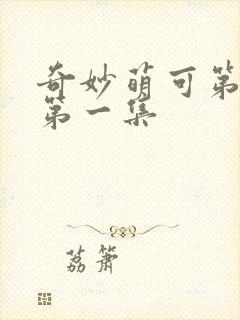 奇妙萌可第
第一集
荔箫